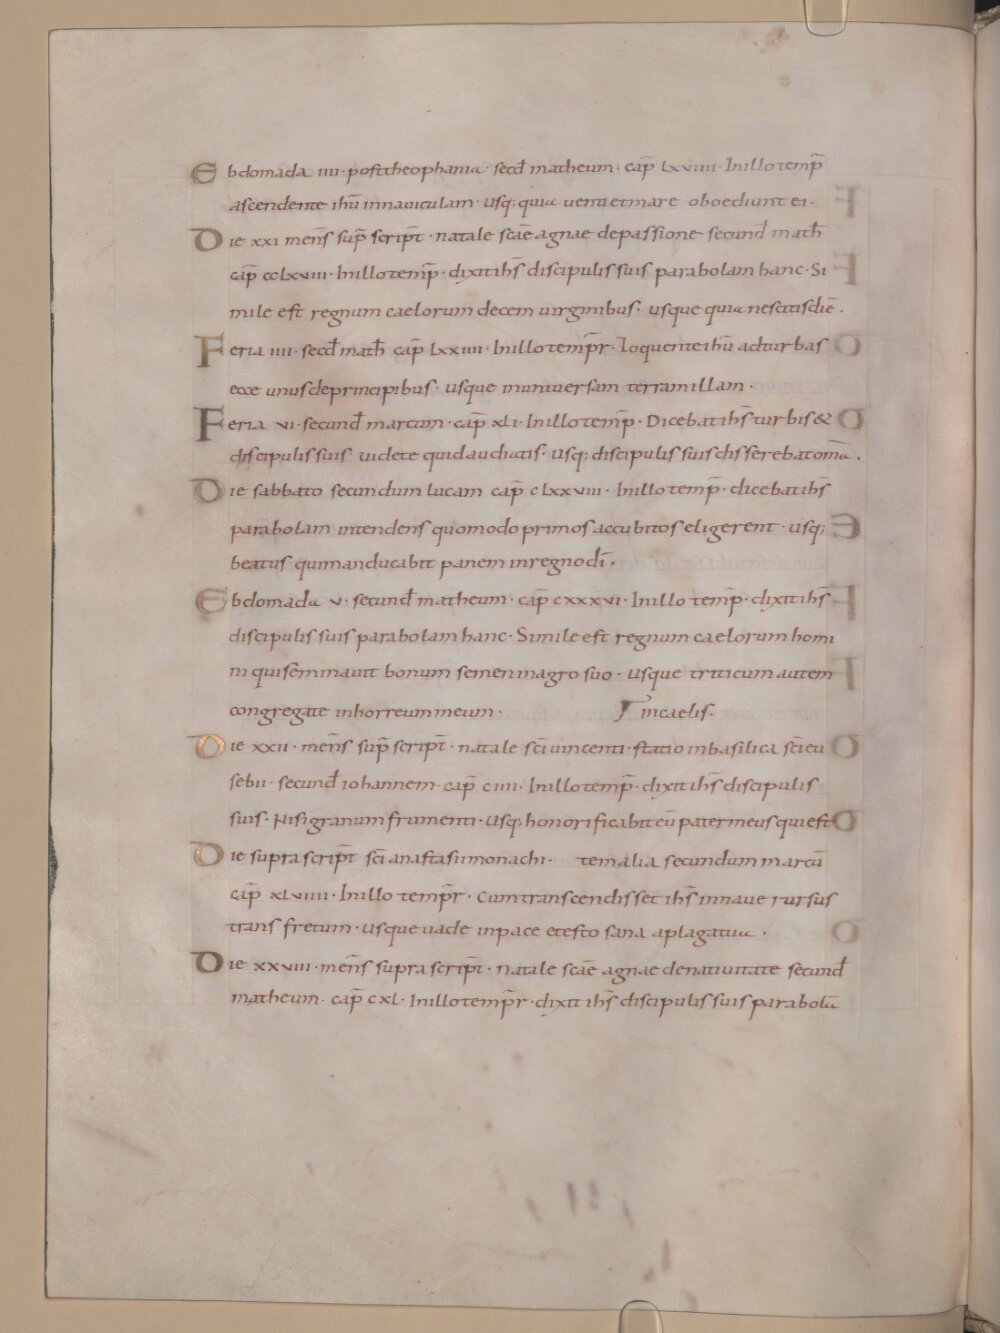 Ebdomada IIII · post theophania · secd̄ matheum · cap̄ LXVIIII · In illo temp̄
ascendente ihū in nauiculam · usq; quia uenti et mare oboediunt ei ·
Die XXI mens̄ sup̄ script̄ · natale scae̅ agnae de passione secund̄ math̄
cap̄ CCLXVIII · In illo temp̄ · dixit ihs̄ discipulis suis parabolam hanc · Si
mile est regnum caelorum decem uirginibus · usque quia nescitis diē .
Feria IIII · secd̄ math̄ cap̄ LXXIIII · In illo temp̄r · Loquente ihū ad turbas
ecce unus de principibus · usque in uniuersam terram illam ·
Feria VI · secund̄ marcum · cap̄ XLI · In illo temp̄ · Dicebat ihs̄ turbis &
discipulis suis uidete quid audiatis · usq; discipulis suis disserebat om̄a .
Die sabbato secundum lucam cap̄ CLXXVIII · In illo temp̄ · dicebat ihs̄
parabolam intendens quomodo primos accubitos eligerent · usq;
beatus qui manducabit panem in regno dī ·
Ebdomada V · secund̄ matheum · cap̄ CXXXVI · In illo temp̄ · dixit ihs̄
discipulis suis parabolam hanc · Simile est regnum caelorum homi
ni qui seminauit bonum semen in agro suo · usque triticum autem
congregate in horreum meum · in caelis ·
Die XXII · mens̄ sup̄ script̄ · natale scī uincenti · statio in basilica scī eu
sebii · secund̄ iohannem · cap̄ CIIII · In illo temp̄ · dixit ihs̄ discipulis
suis · Nisi granum frumenti · usq; honorificabit eū pater meus qui est
Die supra script̄ scī anastasii monachi · temalia secundum marcū
cap̄ XLVIIII · In illo temp̄r · Cum transcendisset ihs̄ in naue rursus
trans fretum · usque uade in pace et esto sana a plaga tua ·
Die XXVIII · mens̄ supra script̄ · natale scae̅ agnae de natiuitate secund̄
matheum · cap̄ CXL · In illo temp̄r · dixit ihs̄ discipulis suis parabolā